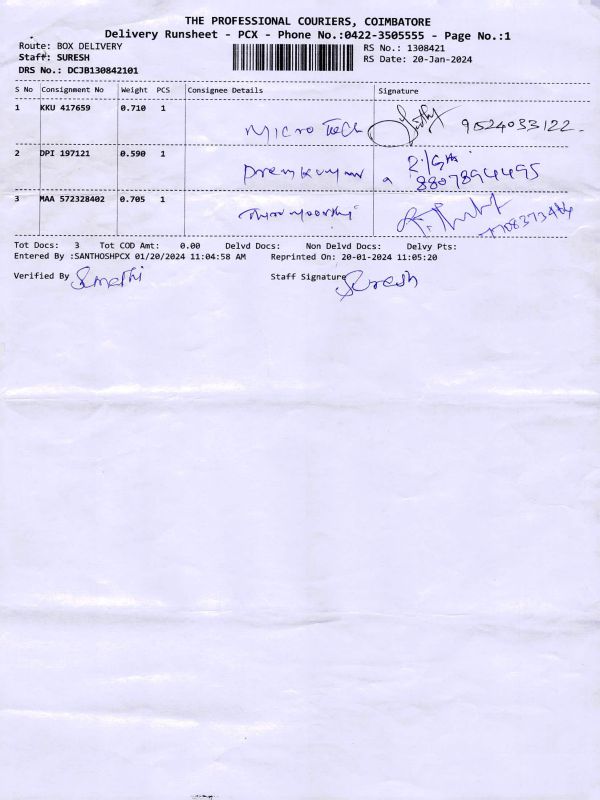 THE PROFESSIONAL COURIERS, COIMBATORE
Delivery Runsheet - PCX - Phone No.:0422-3505555 - Page No.:1
Route: BOX DELIVERY
RS No.: 1308421
Staff: SURESH
RS Date: 20-Jan-2024
DRS No.: DCJB130842101
S No Consignment No Weight PCS Consignee Details Signature
1 KKU 417659 0.710 1
Micro Tech 9524033122
2 DPI 197121 0.590 1
Premkumar 8807894495
3 MAA 572328402 0.705 1
Thirumoorthi
Tot Docs: 3 Tot COD Amt: 0.00 Delvd Docs: Non Delvd Docs: Delvy Pts:
Entered By :SANTHOSHPCX 01/20/2024 11:04:58 AM Reprinted On: 20-01-2024 11:05:20
Verified By Sumathi Staff Signature Suresh